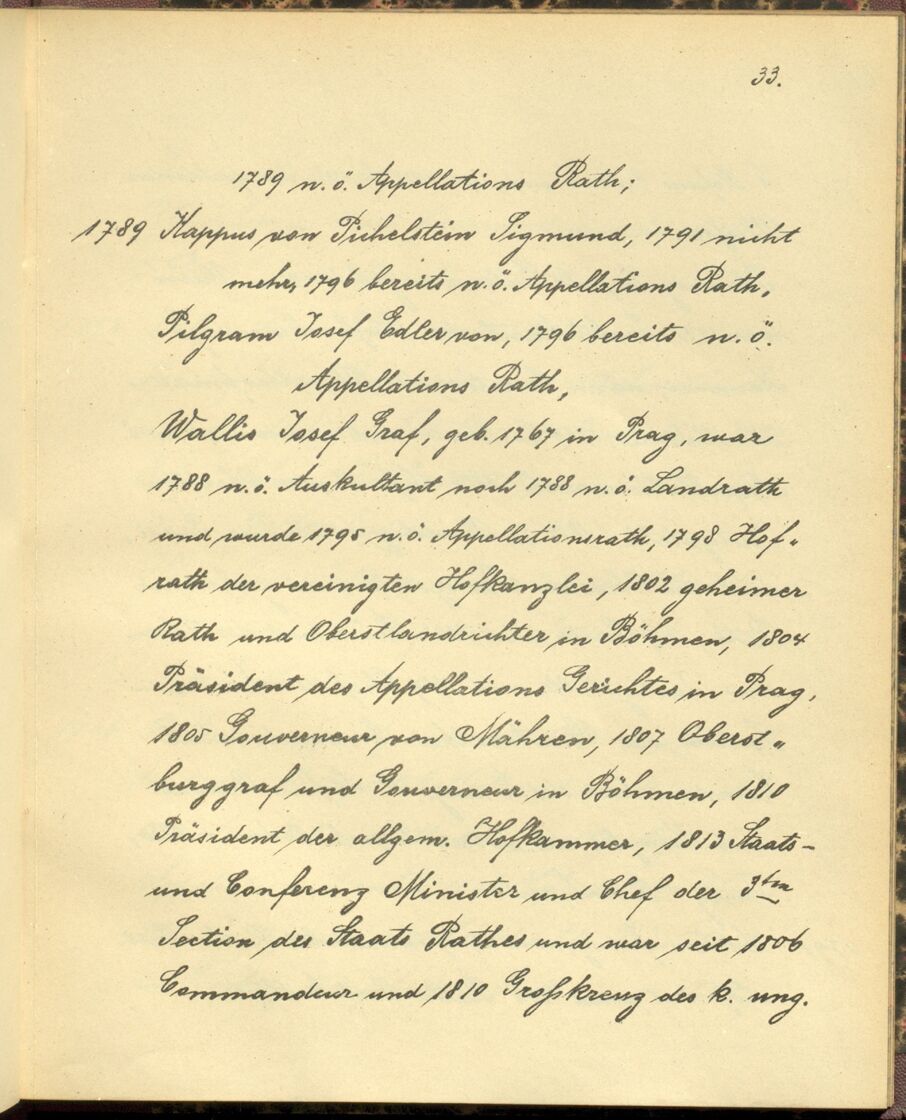 33.
1789 n. ö. Appellations Rath;
1789 Kappus von Pichelstein Sigmund, 1791 nicht
mehr, 1796 bereits n. ö. Appellations Rath,
Pilgram Josef Edler von, 1796 bereits n. ö.
Appellations Rath,
Wallis Josef Graf, geb. 1767 in Prag, war
1788 n. ö. Auskultant noch 1788 n. ö. Landrath
und wurde 1795 n. ö. Appellationsrath, 1798 Hof„
rath der vereinigten Hofkanzlei, 1802 geheimer
Rath und Oberstlandrichter in Böhmen, 1804
Präsident des Appellations Gerichtes in Prag,
1805 Gouverneur von Mähren, 1807 Oberst„
burggraf und Gouverneur in Böhmen, 1810
Präsident der allgem. Hofkammer, 1813 Staats-
und Conferenz Minister und Chef der 3ten
Section des Staats Rathes und war seit 1806
Commandeur und 1810 Großkreuz des k. ung.